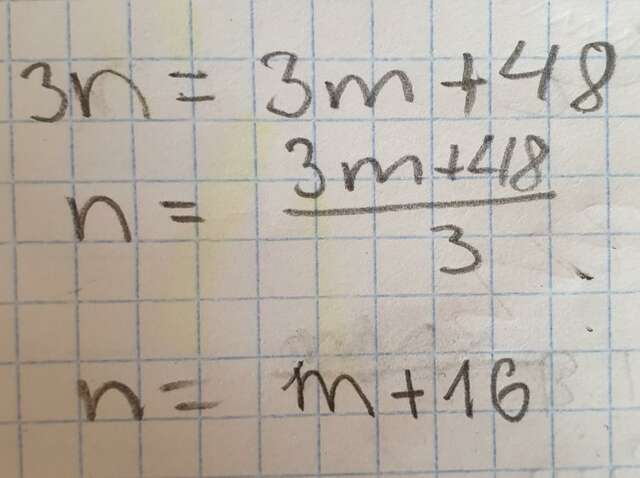 3n = 3m + 48
n = \frac{3m+48}{3}
n = m + 16